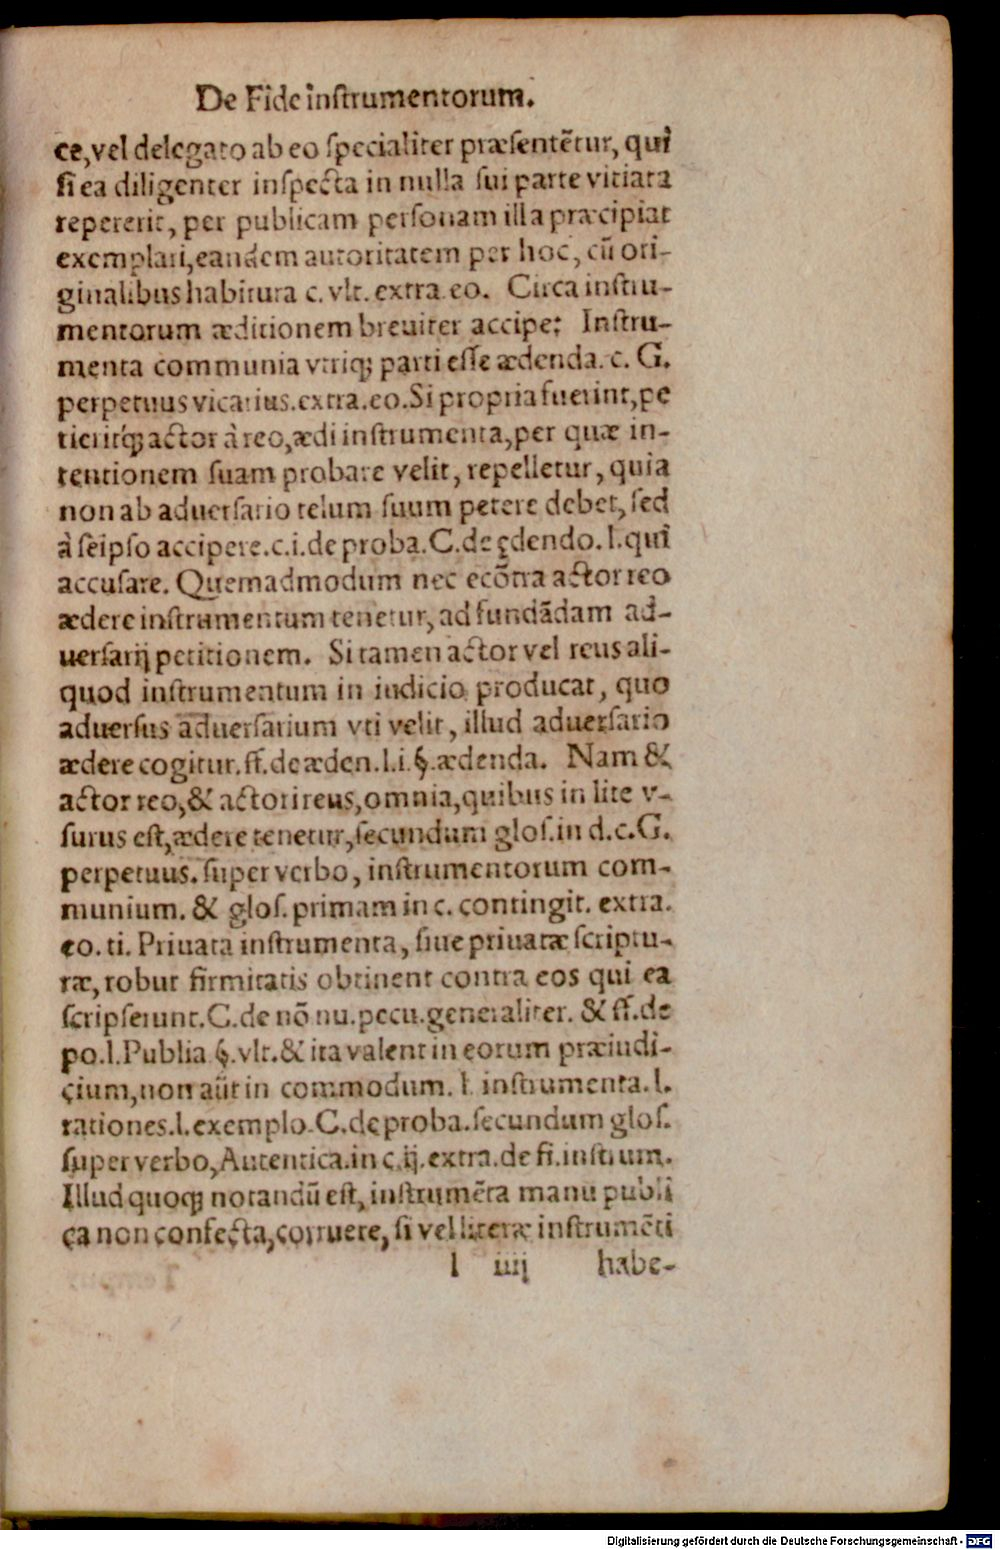 De Fide inſtrumentorum.
ce, vel delegato ab eo ſpecialiter præſentētur, qui
ſi ea diligenter inſpecta in nulla ſui parte vitiata
repererit, per publicam perſonam illa præcipiat
exemplari, eandem autoritatem per hoc, cū ori-
ginalibus habitura c. vlt. extra. eo. Circa inſtru-
mentorum æditionem breuiter accipe: Inſtru-
menta communia vtriq; parti eſſe ædenda. c. G.
perpetuus vicarius. extra. eo. Si propria fuerint, pe
tieritq́; actor à reo, ædi inſtrumenta, per quæ in-
tentionem ſuam probare velit, repelletur, quia
non ab aduerſario telum ſuum petere debet, ſed
à ſeipſo accipere. c. i. de proba. C. de ędendo. l. qui
accuſare. Quemadmodum nec ecōtra actor reo
ædere inſtrumentum tenetur, ad fundādam ad-
uerſarij petitionem. Si tamen actor vel reus ali-
quod inſtrumentum in iudicio producat, quo
aduerſus aduerſarium vti velit, illud aduerſario
ædere cogitur. ff. de æden. l. i. §. ædenda. Nam &
actor reo, & actori reus, omnia, quibus in lite v-
ſurus eſt, ædere tenetur, ſecundum gloſ. in d. c. G.
perpetuus. ſuper verbo, inſtrumentorum com-
munium. & gloſ. primam in c. contingit. extra.
eo. ti. Priuata inſtrumenta, ſiue priuatæ ſcriptu-
ræ, robur firmitatis obtinent contra eos qui ea
ſcripſerunt. C. de nō nu. pecu. generaliter. & ff. de
po. l. Publia §. vlt. & ita valent in eorum præiudi-
cium, non aūt in commodum. l. inſtrumenta. l.
rationes. l. exemplo. C. de proba. ſecundum gloſ.
ſuper verbo, Autentica. in c. ij. extra. de fi. inſtrum.
Illud quoq; notandū eſt, inſtrumēta manu publi
ca non confecta, corruere, ſi vel literæ inſtrumēti
l iiij habe-
Digitalisierung gefördert durch die Deutsche Forschungsgemeinschaft - DFG